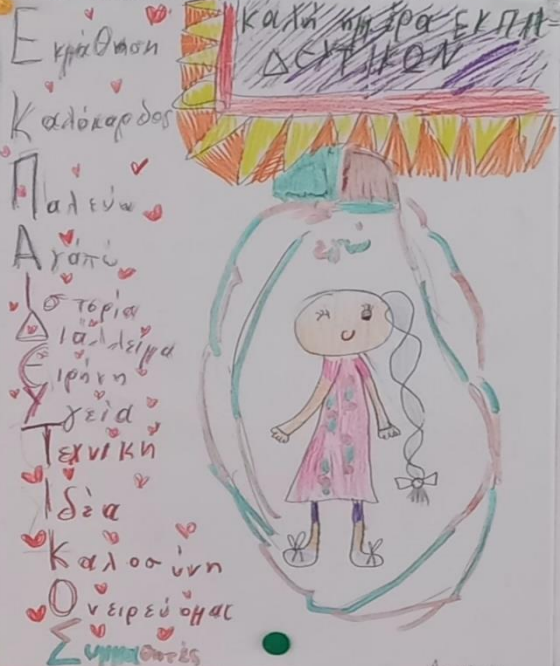 Καλή ημέρα ΕΚΠΑΙ=
ΔΕΥΤΙΚΩΝ
Εκμάθηση
Καλόκαρδος
Παλεύω
Αγάπώ
Ιστορία
Διάλλειμα
Ειρήνη
Υγεία
Τεχνική
Ιδέα
Καλοσύνη
Ονειρεύομαι
Συμμαθητές
εγώ